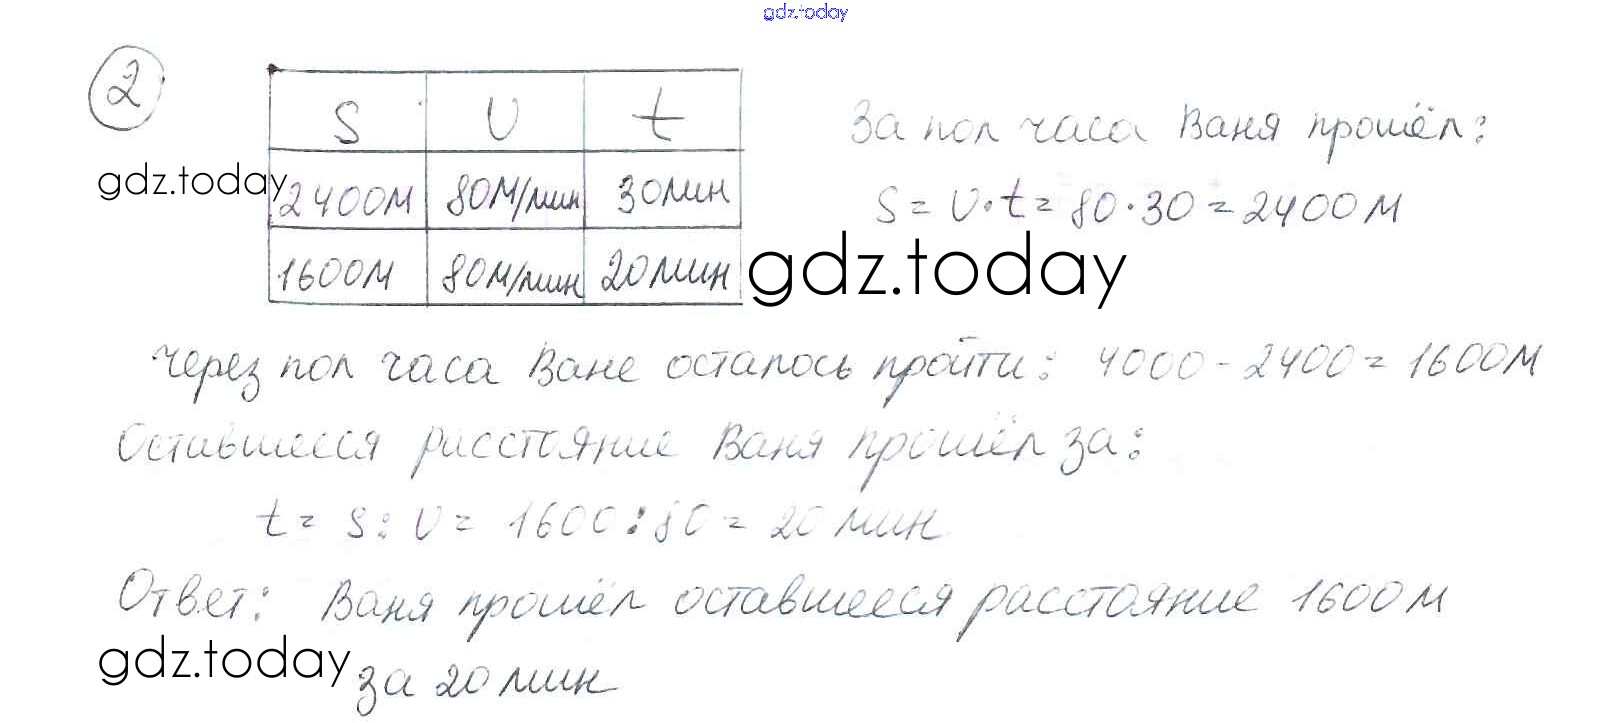 gdz.today
2
S υ t
За пол часа Ваня прошёл:
gdz.today
2400м 80м/мин 30мин
S = υ·t = 80·30 = 2400м
1600м 80м/мин 20мин
gdz.today
Через пол часа Ване осталось пройти: 4000 - 2400 = 1600м
Оставшееся расстояние Ваня прошёл за:
t = S : υ = 1600 : 80 = 20 мин
Ответ: Ваня прошёл оставшееся расстояние 1600м
gdz.today
за 20 мин